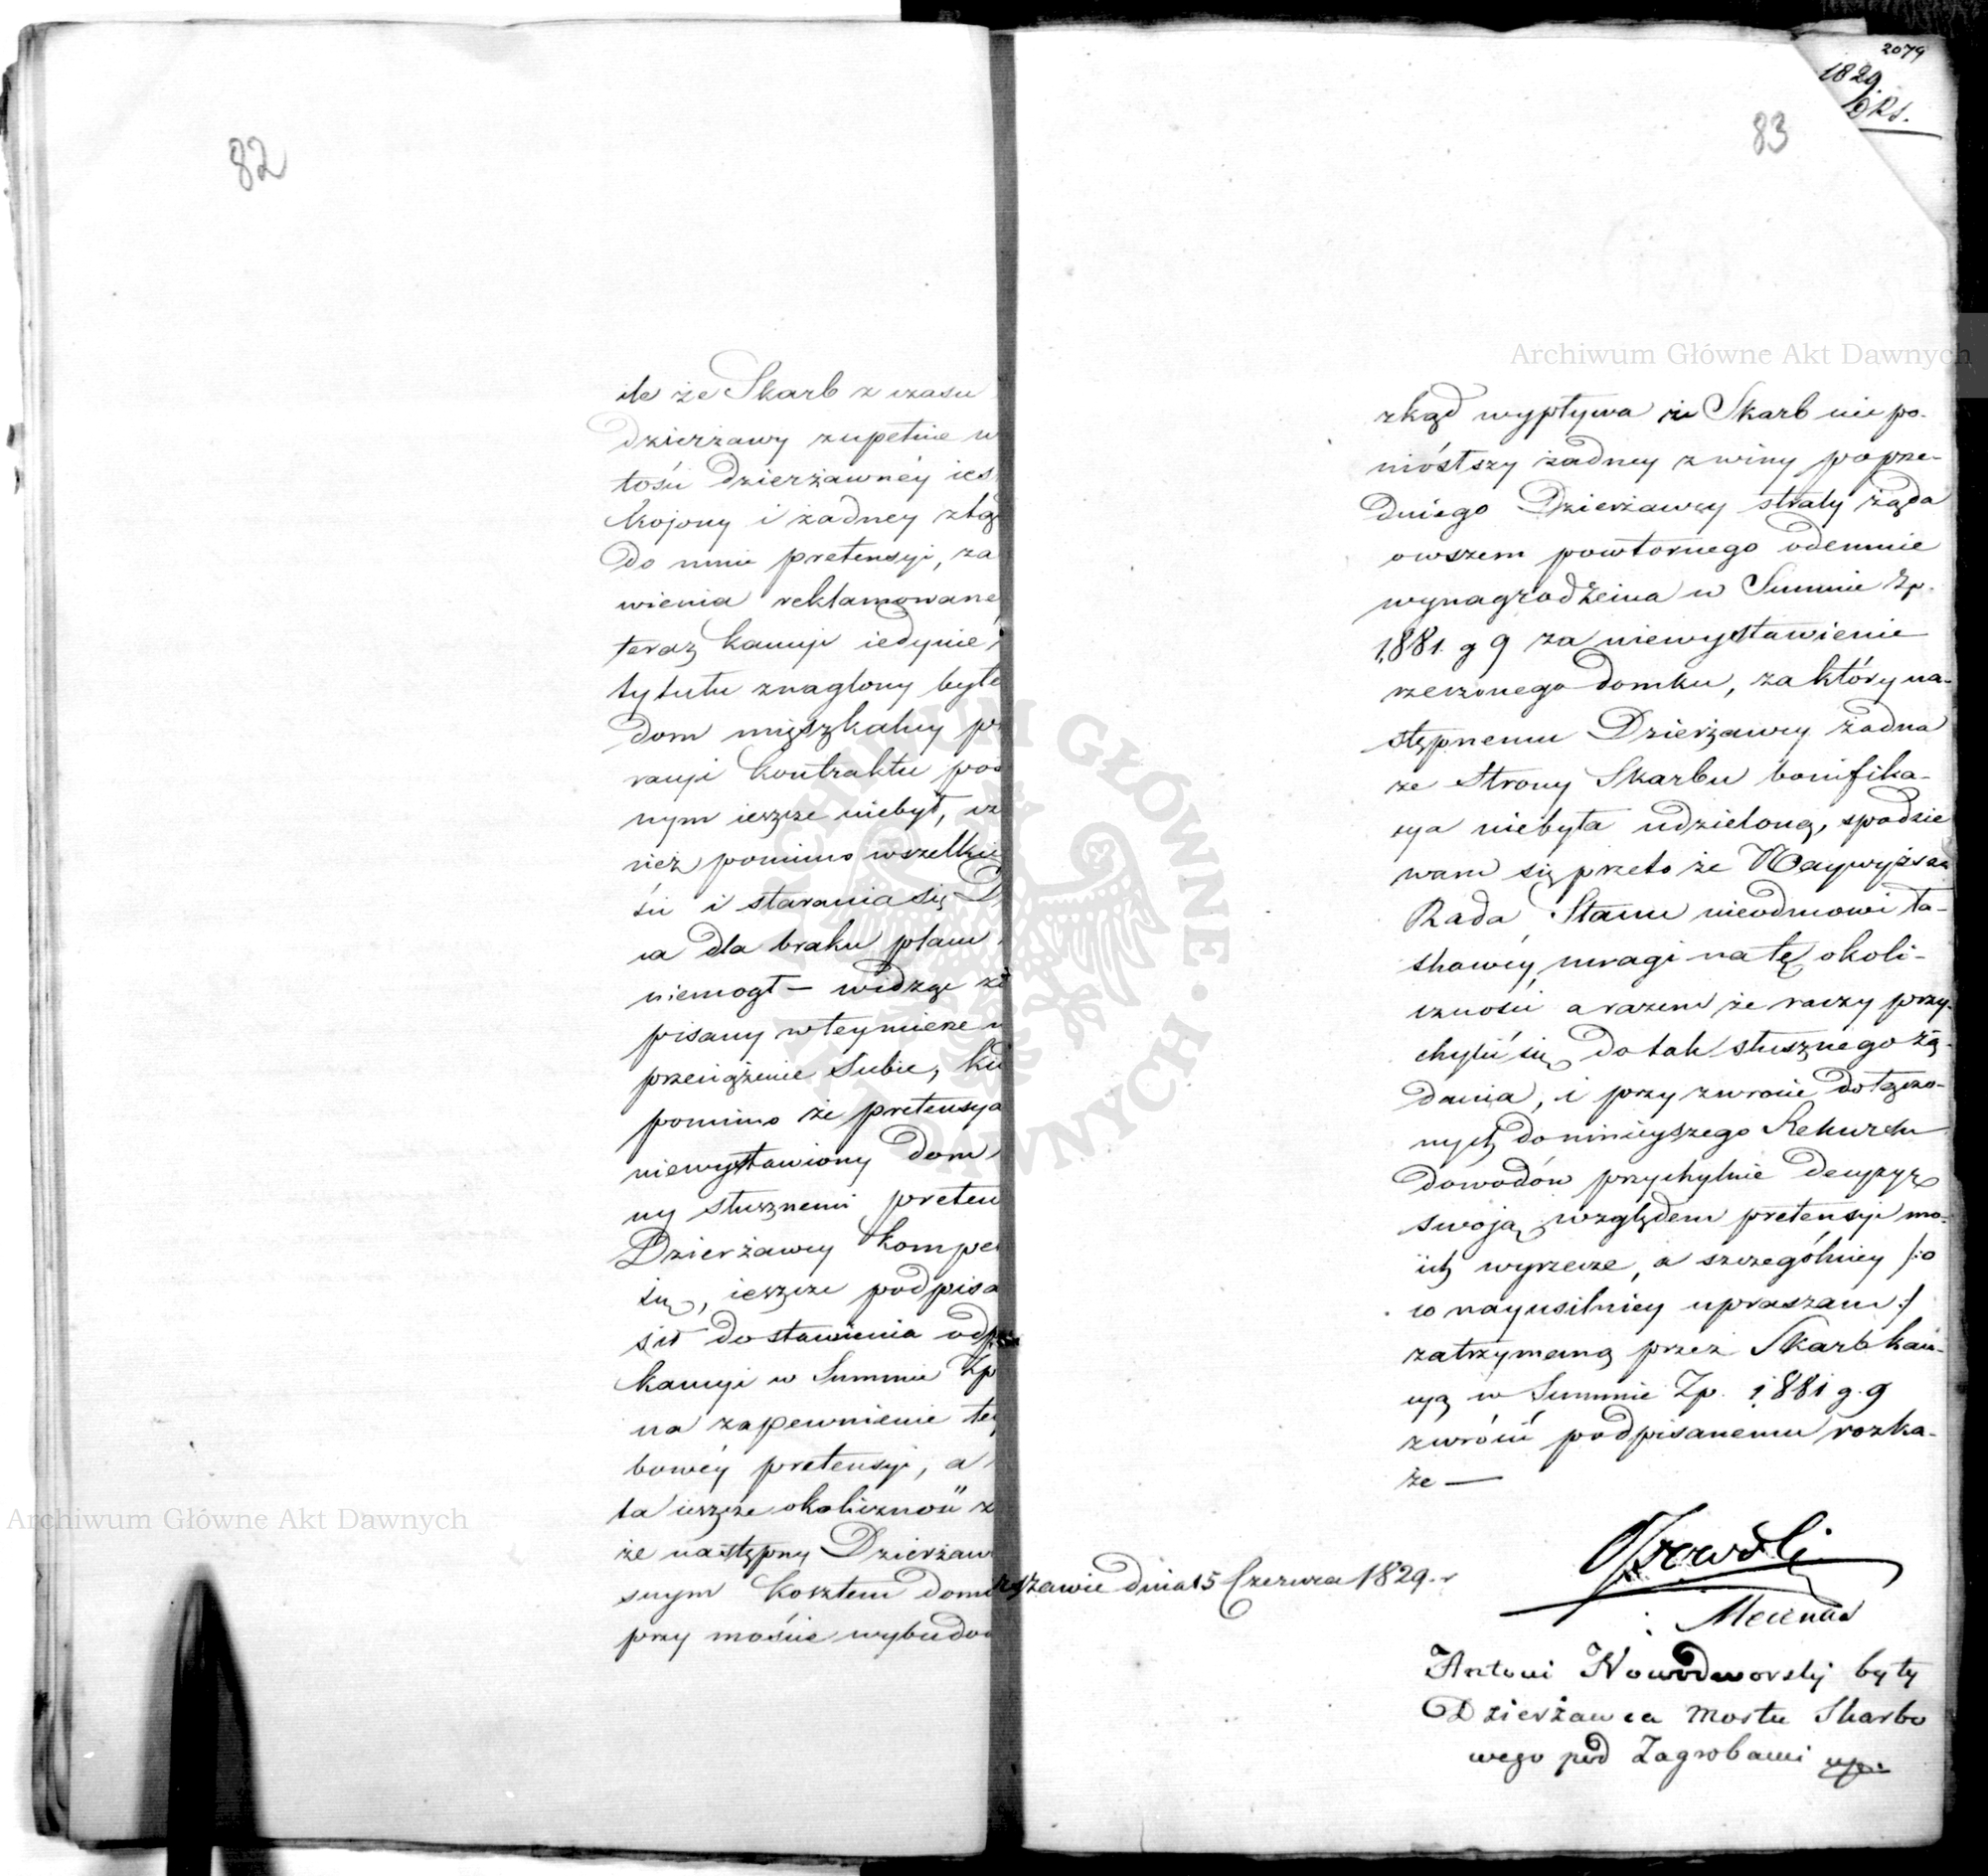 82
ile że Skarb z czasu
Dzierżawy zupełnie w
tości Dzierżawnéy ies
kojony i żadney ztą
do mnie pretensyi, za
wienia reklamowane
teraz kaucyi iedynie
tytułu znaglony byłe
dom mięszkalny pr
rancyi kontraktu pos
nym ieszcze niebył, cz
nież pomimo wszelkie
ści i starania się D
ca dla braku planu
niemogł — widzę
pisany w tey mierze
przeciążenie Sobie, kie
pomimo że pretensya
niewystawiony dom
ny słusznemi preten
Dzierżawcy kompe
się, ieszcze podpisa
sił do stawienia odp
kaucyi w Summie Zp
na zapewnienie tey
bowéy pretensyi, a
ta ieszcze okoliczność z
że następny Dzierżaw
snym kosztem dom
przy moście wybudow
2079
1829
83
zkąd wypływa że Skarb nie po-
niósłszy żadney z winy poprze-
dniego Dzierżawcy straty żąda
owszem powtornego odemnie
wynagrodzenia w Summie Zp.
1,881. g 9 za niewystawienie
rzeczonego domku, za który na-
stępnemu Dzierżawcy żadna
ze Strony Skarbu bonifika-
cya niebyła udzieloną, spodzie
wam się przeto że Naywyższa
Rada Stanu nieodmowi ła-
skawéy uwagi na tę okoli-
czność a razem że raczy przy-
chylić się do tak słusznego żą-
dania, i przy zwrocie dołączo-
nych do ninieyszego Rekursu
dowodów przychylnie decyzyę
swoją względem pretensyi mo-
ich wyrzecze, a szczególniey /:o
co nayusilniey upraszam:/
zatrzymaną przez Skarb kau-
cyą w Summie Zp. 1,881 g. 9
zwrócić podpisanemu rozka-
że —
rszawie dnia 15 Czerwca 1829. r
Mecenas
Antoni Nowodworski były
Dzierżawca Mostu Skarbo
wego pod Zagrobami
Archiwum Główne Akt Dawnych
Archiwum Główne Akt Dawnych
ARCHIWUM GŁÓWNE · AKT DAWNYCH ·